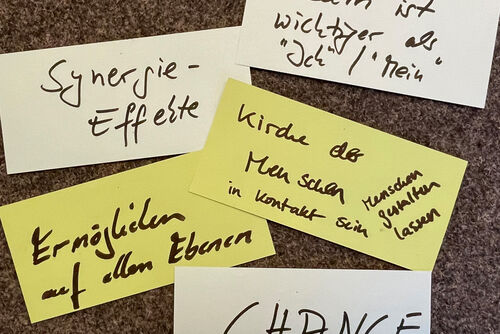 ist
wichtiger als
"Ich" / "Mein"
Synergie-
Effekte
Kirche der
Menschen
in Kontakt sein
Menschen
gestalten
lassen
Ermöglichen
auf allen Ebenen
CHANCE